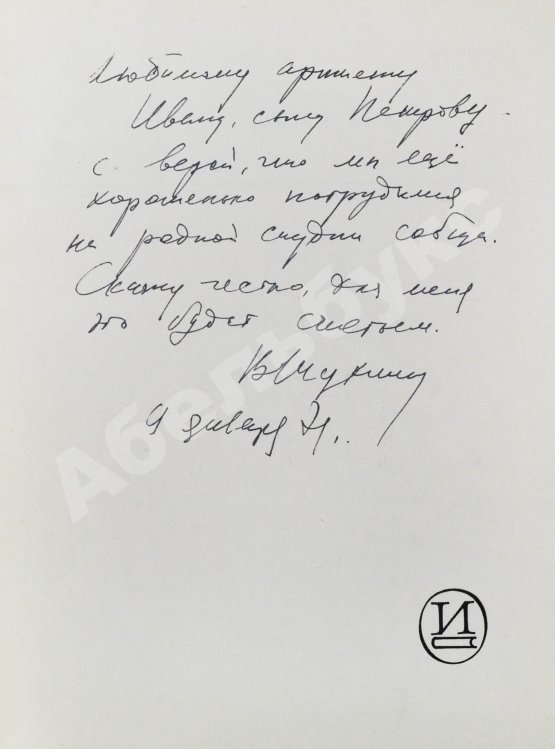 Любимому артисту
Ивану, сыну Петрову -
с верой, что мы ещё
хорошенько потрудимся
на родной студии сообща.
Скажу честно, для меня
это будет счастьем.
В Шукшин
9 января 71г.
И
Абельбукс